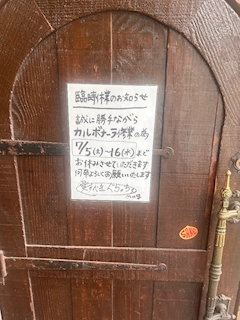 臨時休業のお知らせ
誠に勝手ながら
カルボナーラ休業の為
7/5(土)〜16(水)まで
お休みさせていただきます
何卒よろしくお願いいたします